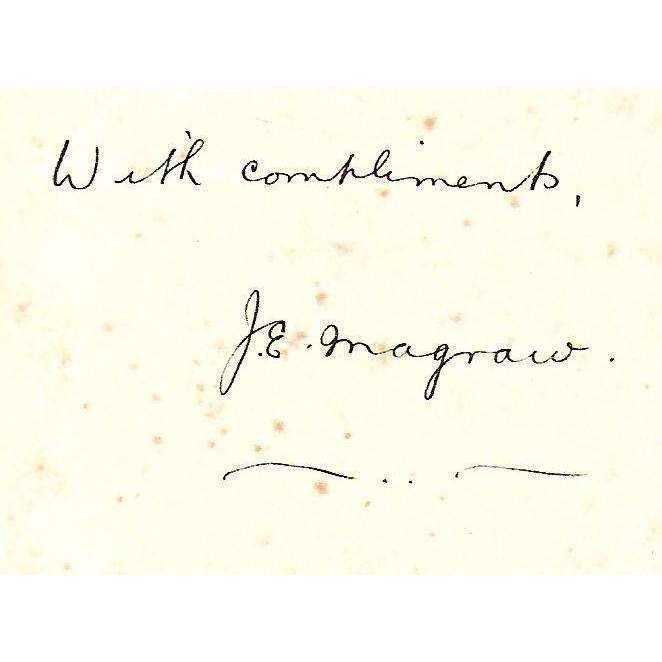 With compliments,
J.E. Magraw.